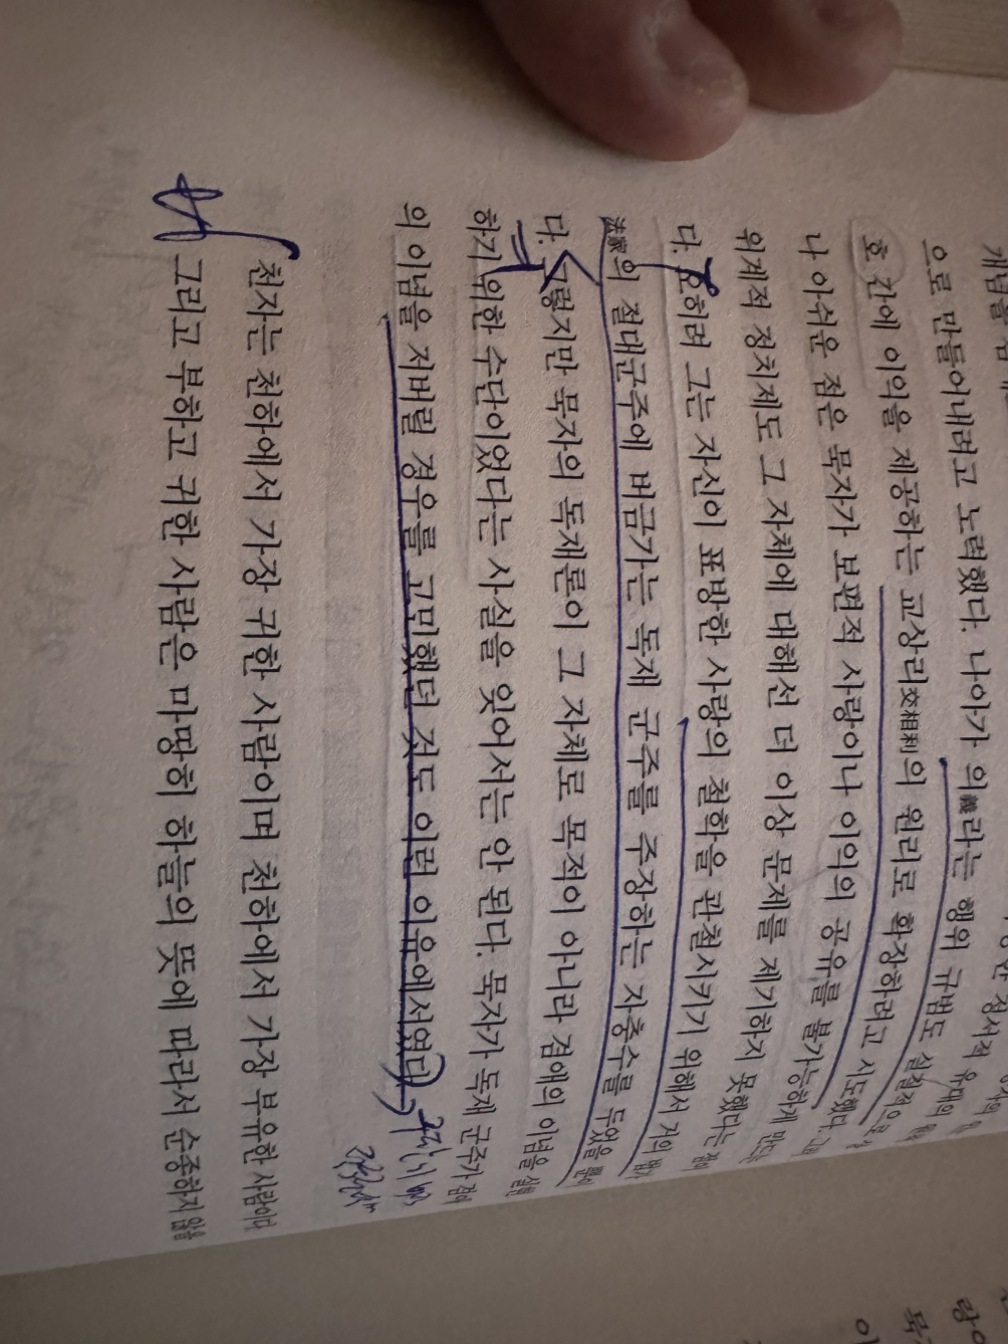 개념을
으로 만들어내려고 노력했다. 나아가 의義라는 행위 규범도 실질적으로 상
호 간에 이익을 제공하는 교상리交相利의 원리로 확장하려고 시도했다. 그러
나 아쉬운 점은 묵자가 보편적 사랑이나 이익의 공유를 불가능하게 만드는
위계적 정치제도 그 자체에 대해선 더 이상 문제를 제기하지 못했다는 점이
다. 요하려 그는 자신이 표방한 사랑의 철학을 관철시키기 위해서 거의 법가
法家의 절대군주에 버금가는 독재 군주를 주장하는 자충수를 두었을 뿐이
다. 그렇지만 묵자의 독재론이 그 자체로 목적이 아니라 겸애의 이념을 실현
하기 위한 수단이었다는 사실을 잊어서는 안 된다. 묵자가 독재 군주가 겸애
의 이념을 저버릴 경우를 고민했던 것도 이런 이유에서였다.
천자는 천하에서 가장 귀한 사람이며 천하에서 가장 부유한 사람이다
그리고 부하고 귀한 사람은 마땅히 하늘의 뜻에 따라서 순종하지 않을